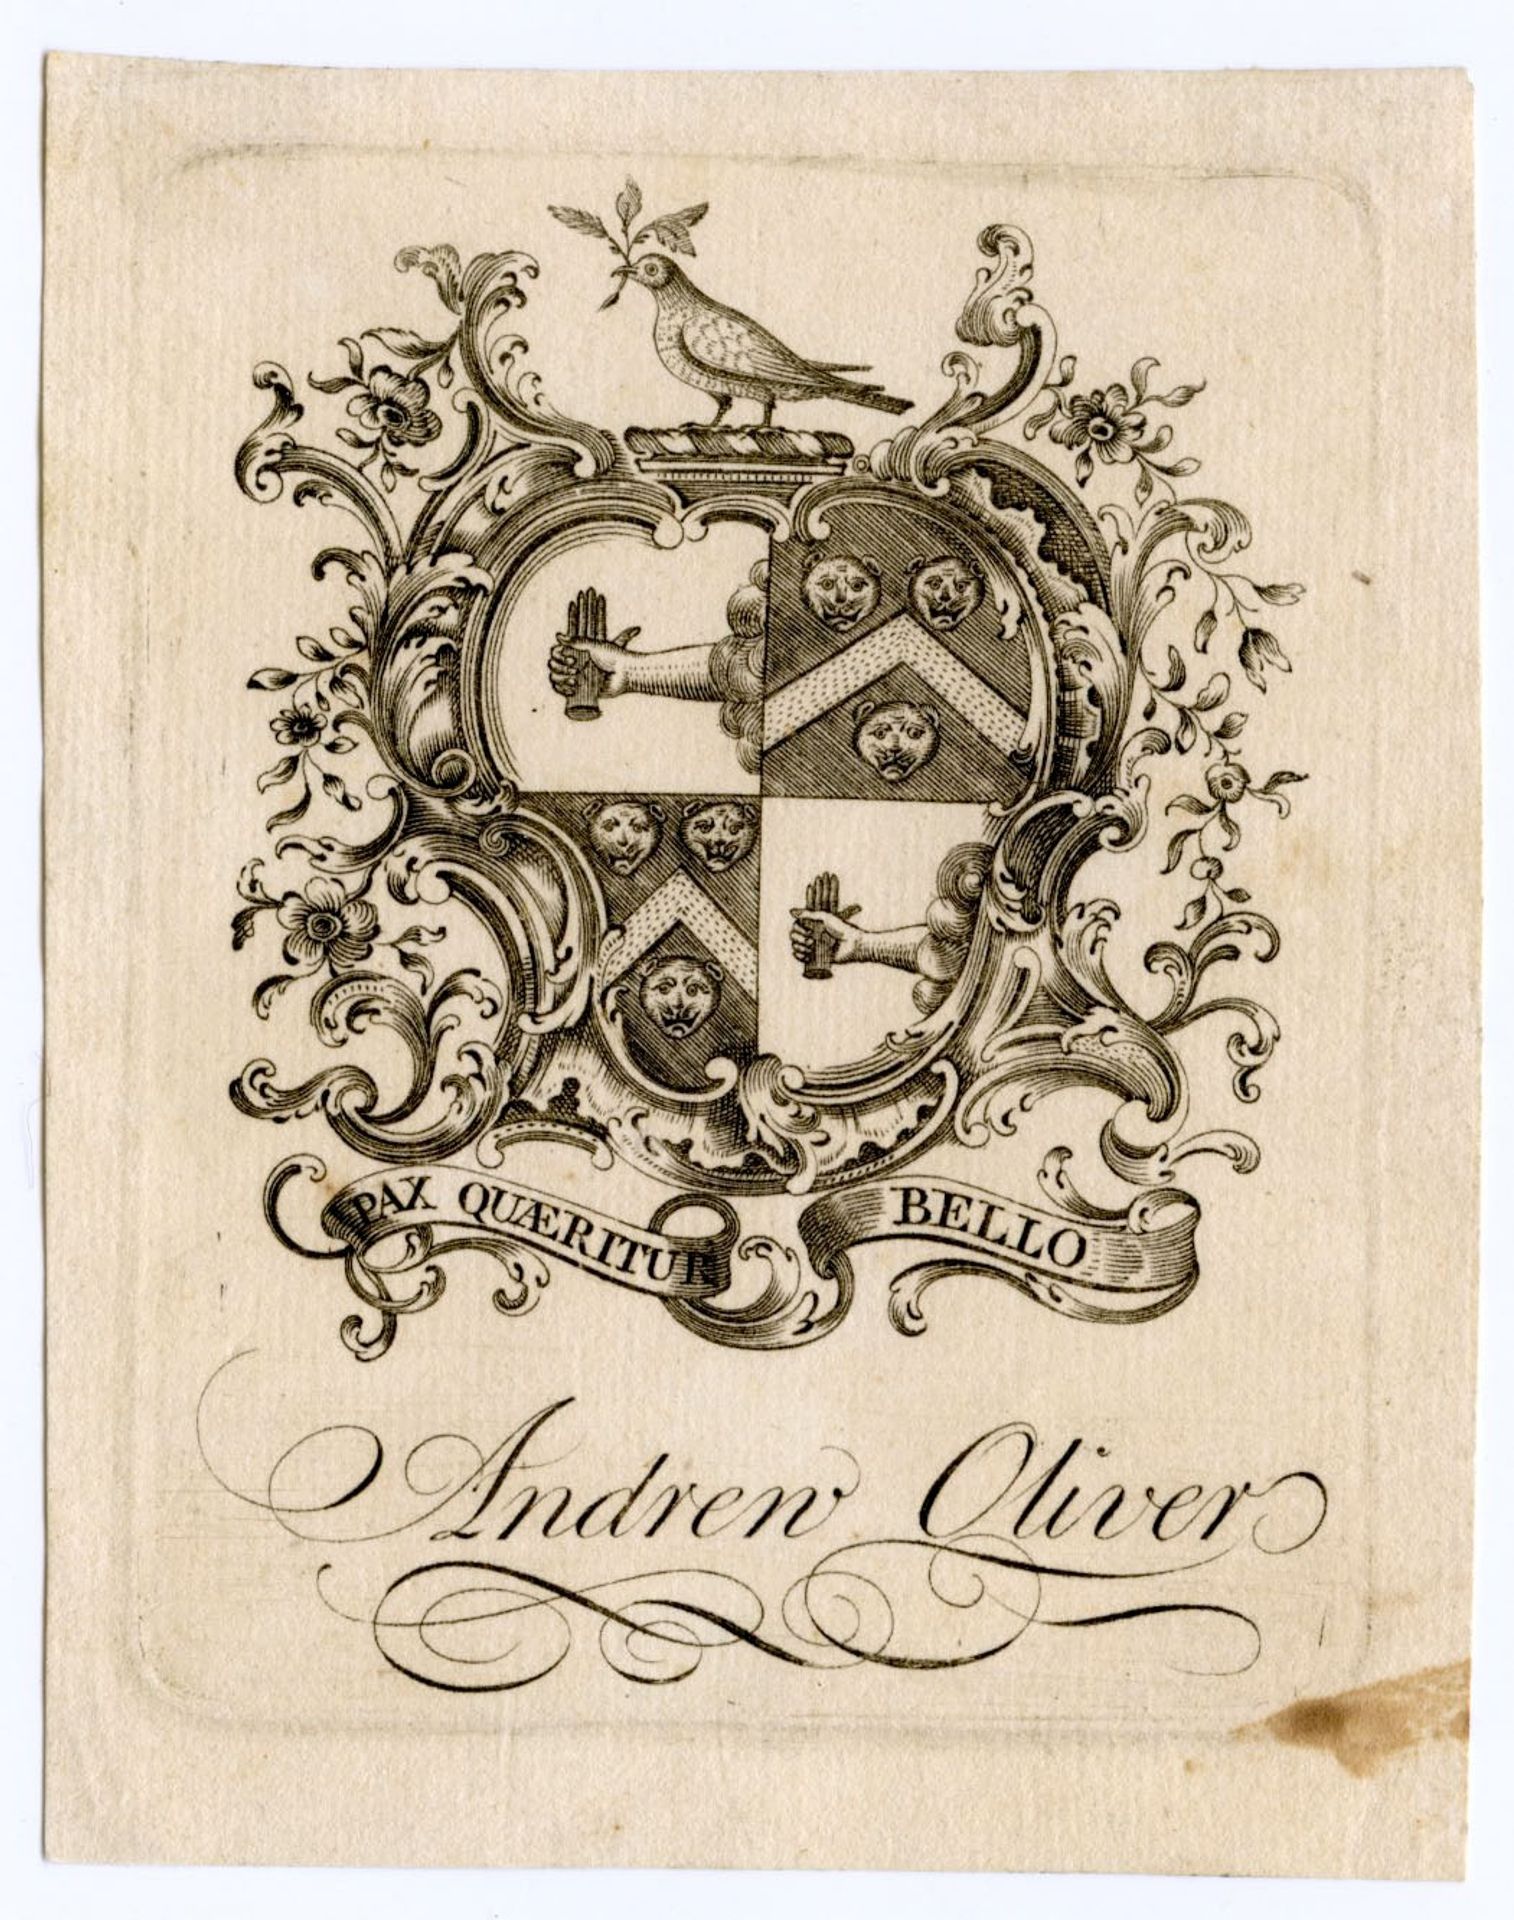 PAX QUÆRITUR BELLO
Andrew Oliver